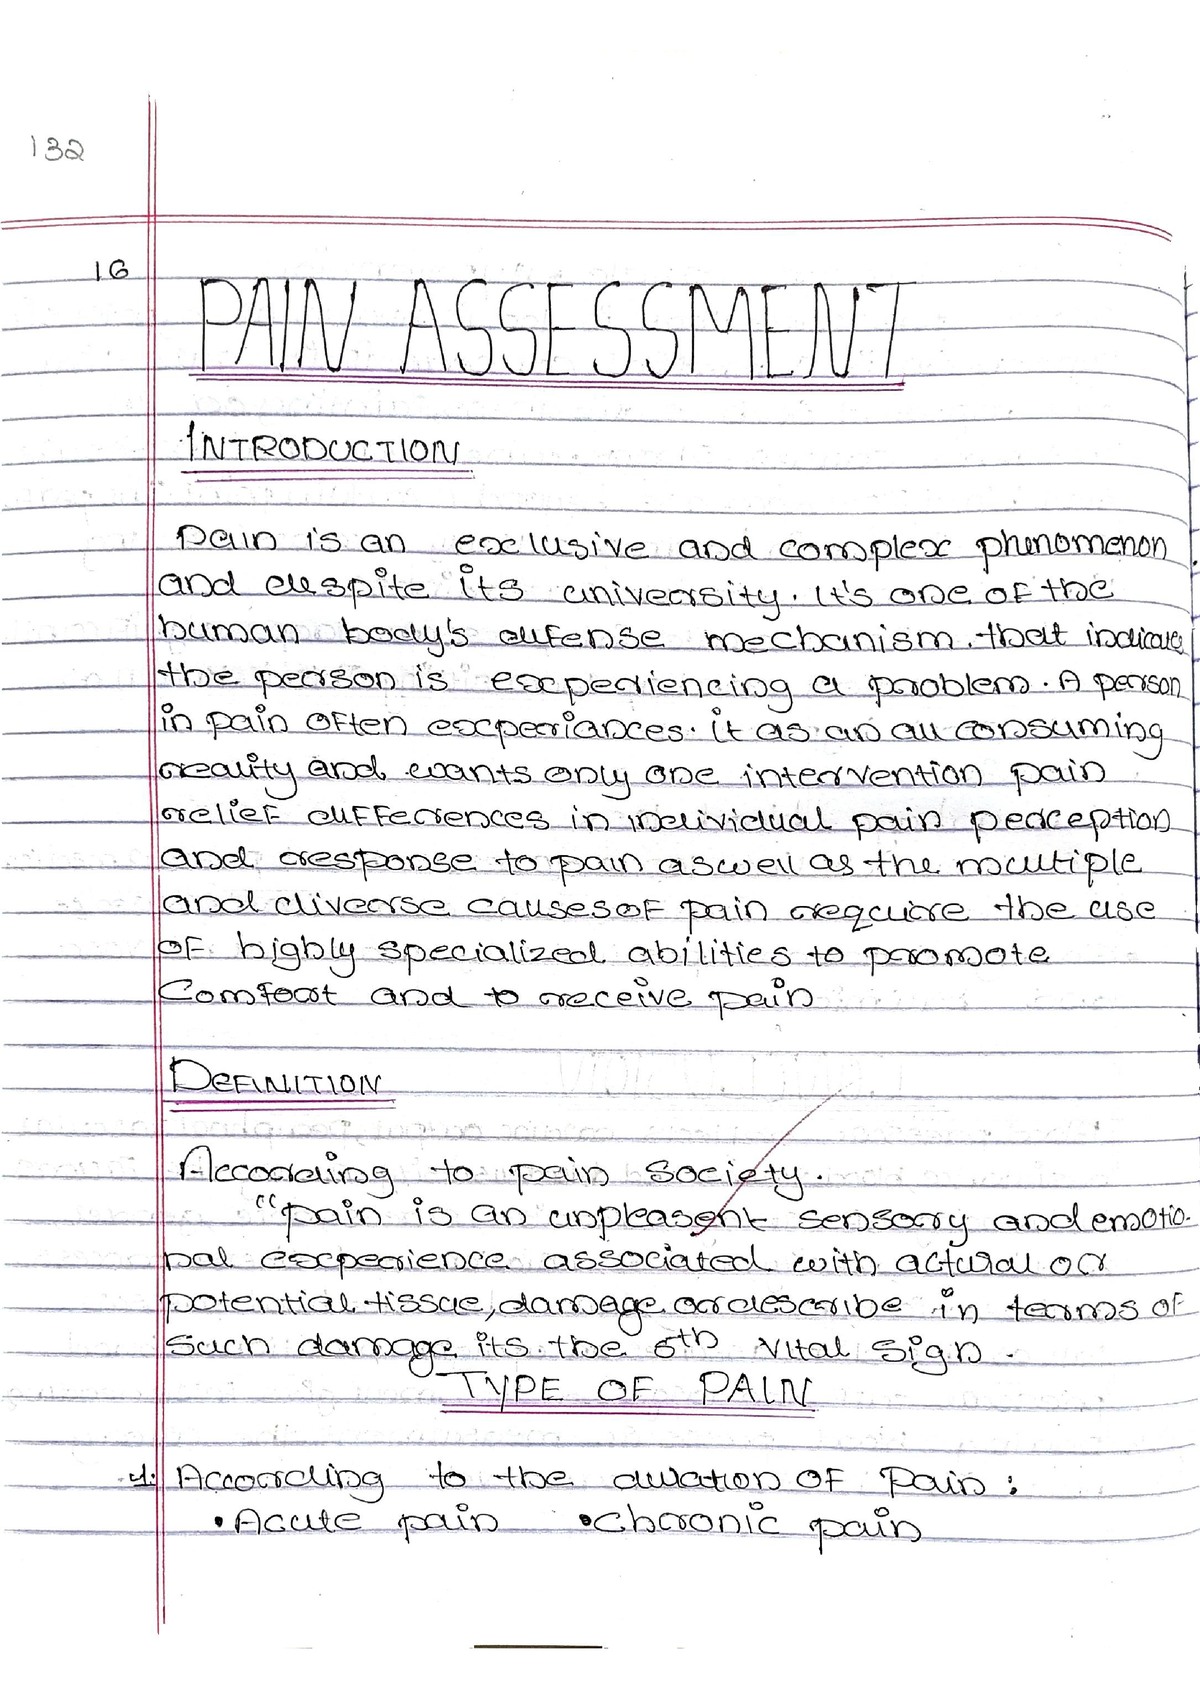 132
16
PAIN ASSESSMENT
INTRODUCTION
Pain is an exclusive and complex phenomenon
and despite its university. It's one of the
human body's defense mechanism. that indicate
the person is experiencing a problem. A person
in pain often experiances. it as an all consuming
reality and wants only one intervention pain
relief differences in individual pain perception
and response to pain aswell as the multiple
and diverse causes of pain require the use
of highly specialized abilities to promote
Comfort and to receive pain
DEFINITION
According to pain society.
"pain is an unpleasent sensory and emotio-
nal experience associated with actural or
potential tissue, damage or describe in terms of
such damage its the 5th vital sign.
TYPE OF PAIN
1. According to the duration of Pain :
• Acute pain • chronic pain